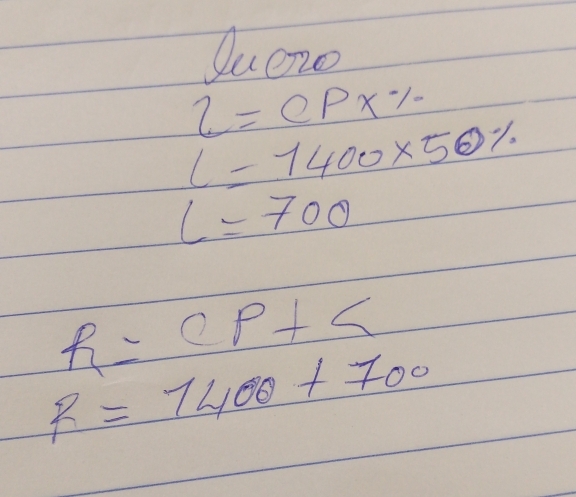 lucro
L = CP x %
L = 1400 x 50%
L = 700
R = CP + L
R = 1400 + 700